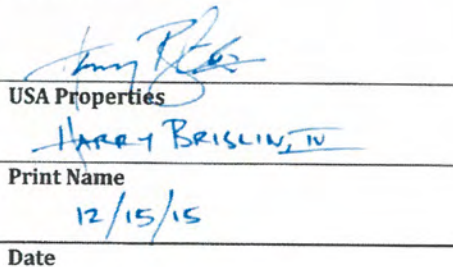 USA Properties
HARRY BRISLIN, IV
Print Name
12/15/15
Date